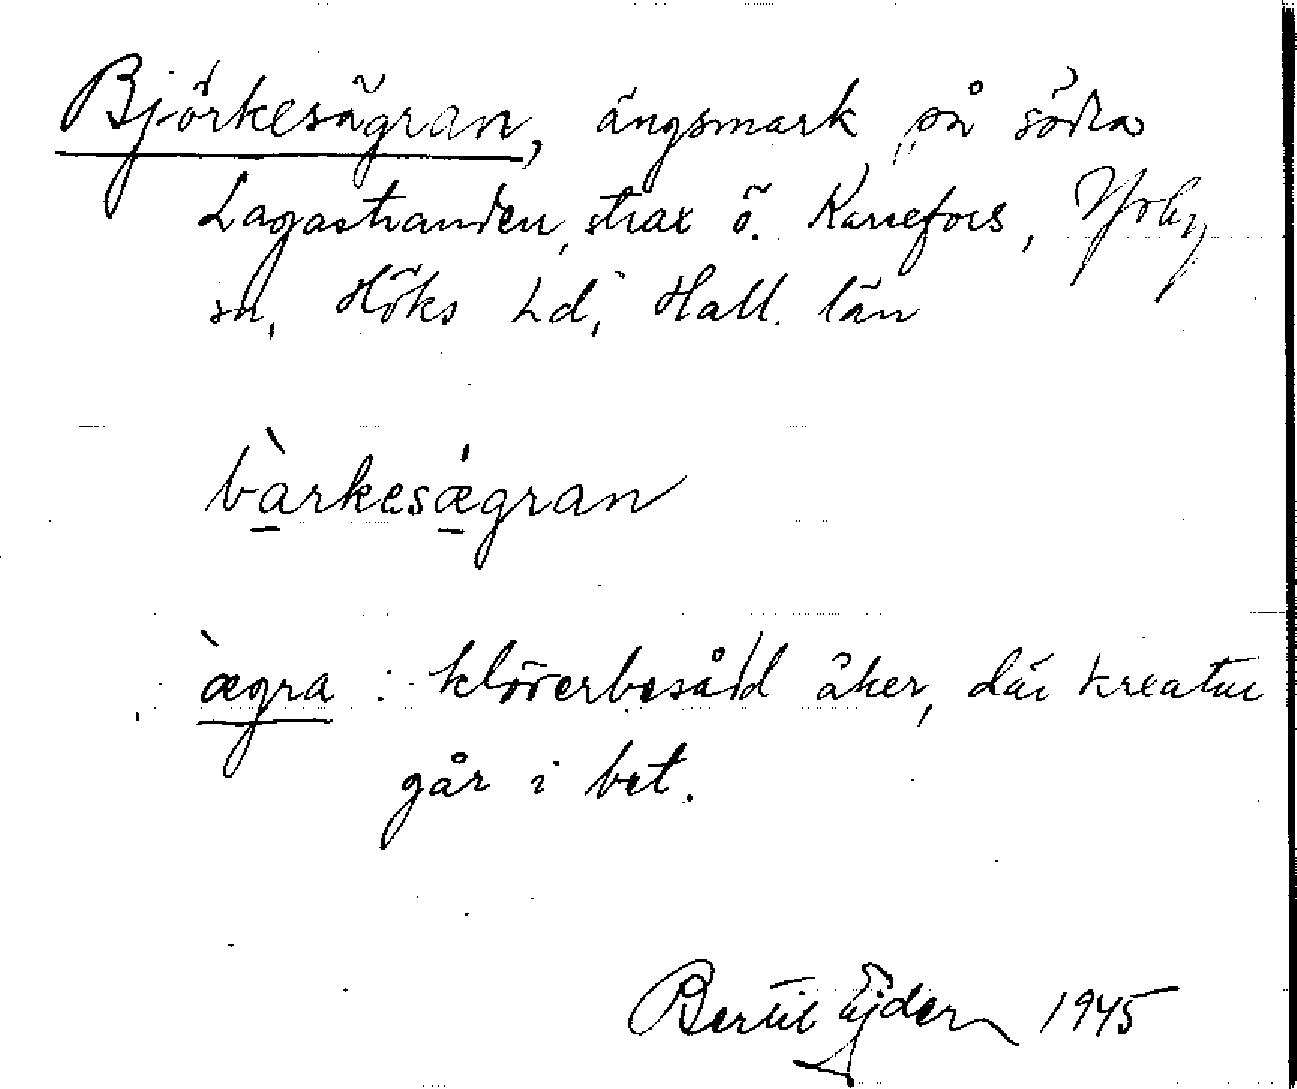 Björkesägran, ängsmark på södra
Lagastranden, strax ö. Karsefors, Ysby
sn, Höks hd, Hall. län
bàrkesǽgran
ægra : klöverbesådd åker, där kreatur
går i bet.
Bertil Ejder 1945